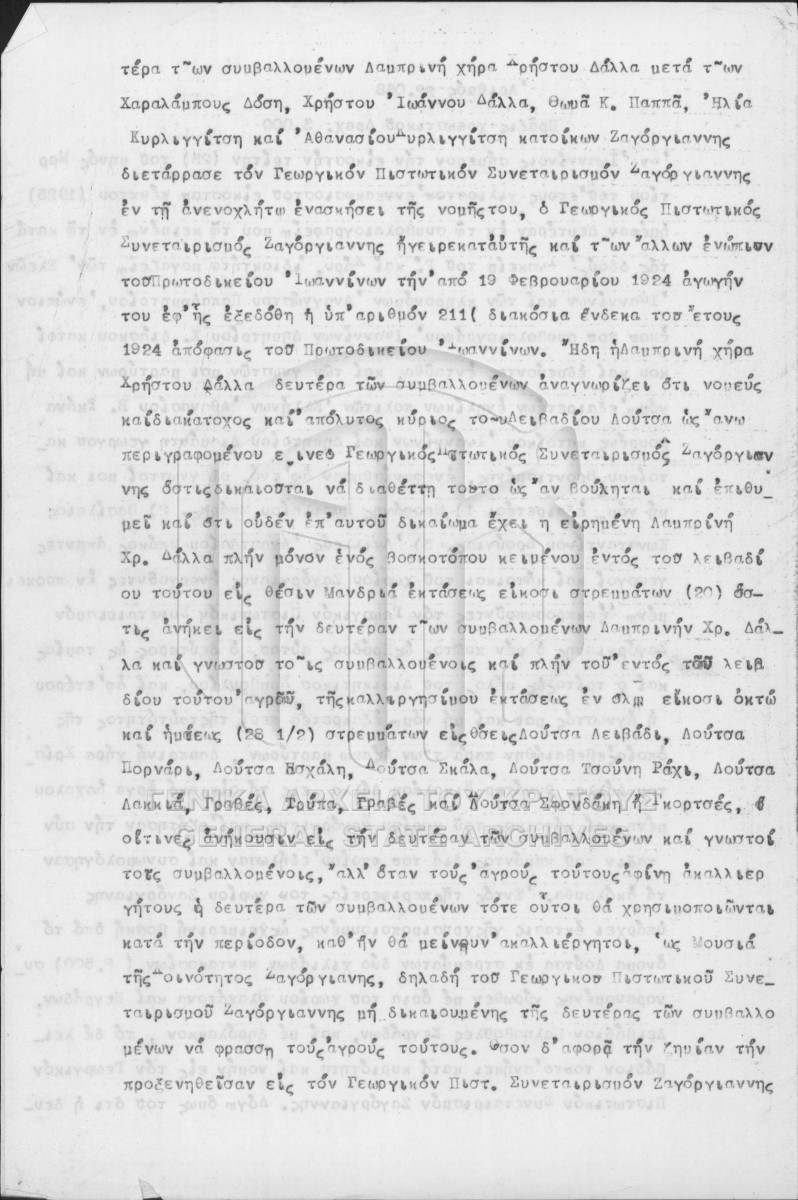 τέρα τ~ων συμβαλλομένων Λαμπρινή χήρα Χρήστου Δάλλα μετά τ~ων
Χαραλάμπους Δόση, Χρήστου Ἰωάννου Δάλλα, Θωμᾶ Κ. Παππᾶ, Ἠλία
Κυρλιγγίτση καί Ἀθανασίου Κυρλιγγίτση κατοίκων Ζαγόργιαννης
διετάρρασε τόν Γεωργικόν Πιστωτικόν Συνεταιρισμόν Ζαγόργιαννης
ἐν τῇ ἀνενοχλήτω ἐνασκήσει τῆς νομῆς του, ὁ Γεωργικός Πιστωτικός
Συνεταιρισμός Ζαγόργιαννης ἤγειρε κατ αὐτῆς καί τ~ων ἄλλων ἐνώπιον
τοῦ Πρωτοδικείου Ἰωαννίνων τήν ἀπό 19 Φεβρουαρίου 1924 ἀγωγήν
του ἐφ' ἧς ἐξεδόθη ἡ ὑπ' ἀριθμόν 211( διακόσια ἕνδεκα του ἔτους
1924 ἀπόφασις τοῦ Πρωτοδικείου Ἰωαννίνων. Ἤδη ἡ Λαμπρινή χήρα
Χρήστου Δάλλα δευτέρα τῶν συμβαλλομένων ἀναγνωρίζει ὅτι νομεύς
καί διακάτοχος καί ἀπόλυτος κύριος το~υ Λειβαδίου Λούτσα ὡς ἄνω
περιγραφομένου εἶνε ὁ Γεωργικός Πιστωτικός Συνεταιρισμός Ζαγόργιαν
νης ὅστις δικαιοῦται νά διαθέττῃ τοῦτο ὡς ἄν βούληται καί ἐπιθυ-
μεῖ καί ὅτι οὐδέν ἐπ' αὐτοῦ δικαίωμα ἔχει η εἰρημένη Λαμπρίνή
Χρ. Δάλλα πλήν μόνον ἑνός βοσκοτόπου κειμένου ἐντός του λειβαδί
ου τούτου εἰς θέσιν Μανδριά ἐκτάσεως εἴκοσι στρεμμάτων (20) ὅσ-
τις ἀνήκει εἰς τήν δευτέραν τ~ων συμβαλλομένων Λαμπρινήν Χρ. Δάλ-
λα καί γνωστοῦ το~ις συμβαλλομένοις καί πλήν τοῦ ἐντός τοῦ λειβ
δίου τούτου ἀγροῦ, τῆς καλλιεργησίμου ἐκτάσεως ἐν ὅλῳ εἴκοσι ὀκτώ
καί ἡμίσεως (28 1/2) στρεμμάτων εἰς θέσεις Λούτσα Λειβάδι, Λούτσα
Πορνάρι, Λούτσα Μσχάλη, Λούτσα Σκάλα, Λούτσα Τσούνη Ράχι, Λούτσα
Λακκιά, Γραβές, Τρύπα, Γραβές καί Λούτσα Σφονδάκη ἤ Γκορτσές, ὁ
οἵτινες ἀνήκουσιν εἰς τήν δευτέραν τῶν συμβαλλομένων καί γνωστοί
τοῖς συμβαλλομένοις, ἀλλ' ὅταν τούς ἀγρούς τούτους ἀφίνῃ ἀκαλλιερ
γήτους ἡ δευτέρα τῶν συμβαλλομένων τότε οὗτοι θά χρησιμοποιῶνται
κατά τήν περίοδον, καθ' ἥν θά μείνουν ἀκαλλιέργητοι, ὡς Μουσιά
τῆς Κοινότητος Ζαγόργιανης, δηλαδή τοῦ Γεωργικοῦ Πιστωτικοῦ Συνε-
ταιρισμοῦ Ζαγόργιαννης μή δικαιουμένης τῆς δευτέρας τῶν συμβαλλο
μένων νά φρασσῃ τούς ἀγρούς τούτους. Ὅσον δ' ἀφορᾷ τήν ζημίαν τήν
προξενηθεῖσαν εἰς τόν Γεωργικόν Πιστ. Συνεταιρισμόν Ζαγόργιαννης
ΓΕΝΙΚΑ ΑΡΧΕΙΑ ΤΟΥ ΚΡΑΤΟΥΣ
GENERAL STATE ARCHIVES